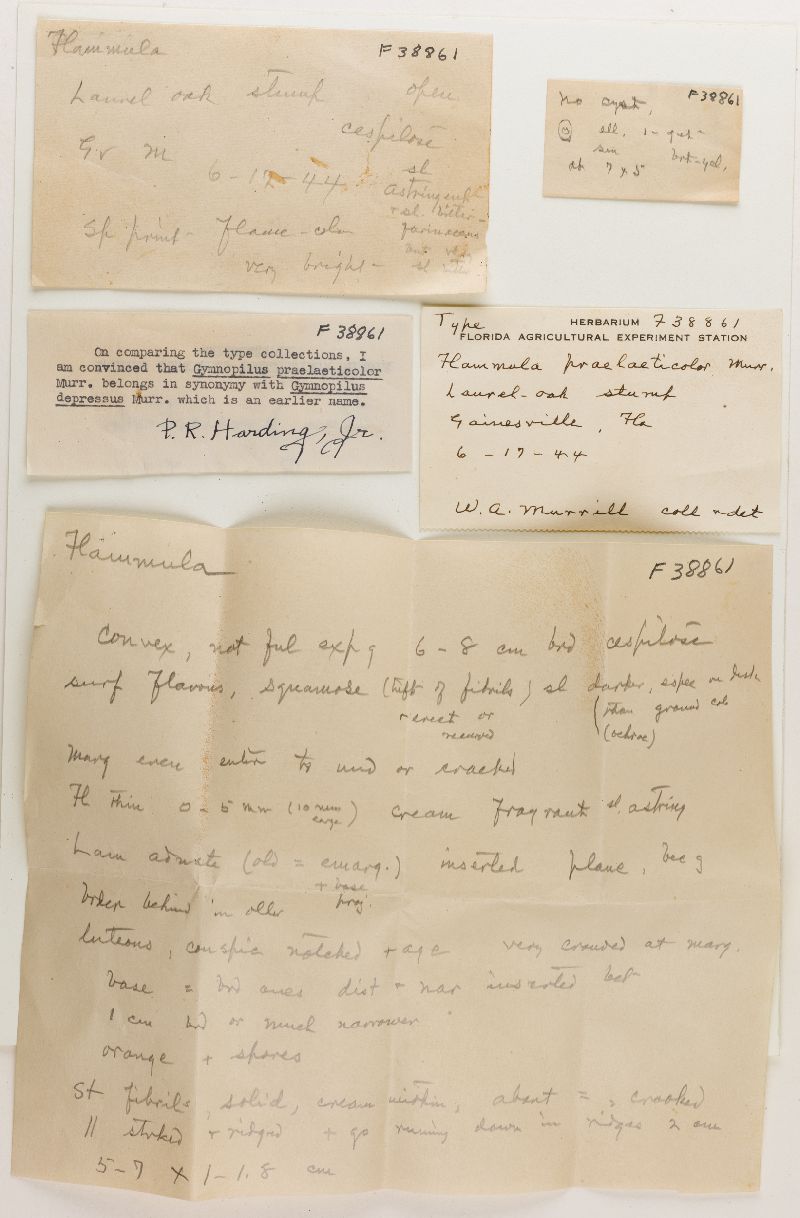 Flammula F38861
Laurel oak stump open
cespitose
Gr M
6-17-44 sl
astringent
+ sl. bitter-
farinaceous
but very
sl bitter
Sp print- Flame-colm
very bright-
F38861
no cyst,
ell, 1-gut-
sm brt-yel,
ab 7 x 5
F 38861
On comparing the type collections, I
am convinced that Gymnopilus praelaeticolor
Murr. belongs in synonymy with Gymnopilus
depressus Murr. which is an earlier name.
P. R. Harding, Jr.
Type HERBARIUM F38861
FLORIDA AGRICULTURAL EXPERIMENT STATION
Flammula praelaeticolor Murr.
Laurel-oak stump
Gainesville, Fla
6 - 17 - 44
W. A. Murrill coll + det
Flammula F38861
Convex, not ful exp g 6 - 8 cm brd cespitose
surf flavous, squamose (tuft of fibrils) sl darker, espec on disk
+ erect or (than ground col
recurved (ochrac)
marg even entire to und or cracked
Fl thin 0 - 5 mm (10 mm cream fragrant sl. astring
Lam adnate (old = emarg.) inserted plane, bec g
+ base
brder behind in older proj.
luteous, conspic notched + age very crowded at marg.
base = brd ones dist + nar inserted bet
1 cm brd or much narrower
orange + spores
St fibrils, solid, cream within, about =, crooked
|| strked + ridged + go running down in ridges 2 cm
5-7 x 1-1.8 cm